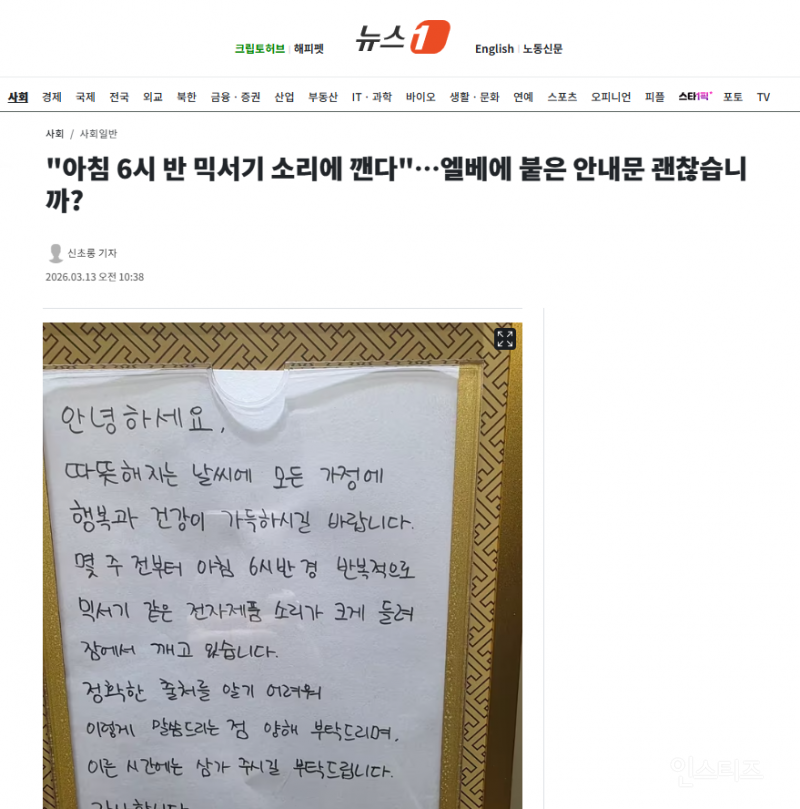 크립토허브 | 해피펫
뉴스1
English | 노동신문
사회 경제 국제 전국 외교 북한 금융·증권 산업 부동산 IT·과학 바이오 생활·문화 연예 스포츠 오피니언 피플 스타1픽 포토 TV
사회 / 사회일반
"아침 6시 반 믹서기 소리에 깬다"…엘베에 붙은 안내문 괜찮습니
까?
신초롱 기자
2026.03.13 오전 10:38
안녕하세요,
따뜻해지는 날씨에 모든 가정에
행복과 건강이 가득하시길 바랍니다.
몇 주 전부터 아침 6시반 경 반복적으로
믹서기 같은 전자제품 소리가 크게 들려
잠에서 깨고 있습니다.
정확한 출처를 알기 어려워
이렇게 말씀드리는 점 양해 부탁드리며,
이른 시간에는 삼가 주시길 부탁드립니다.
감사합니다
인스티즈